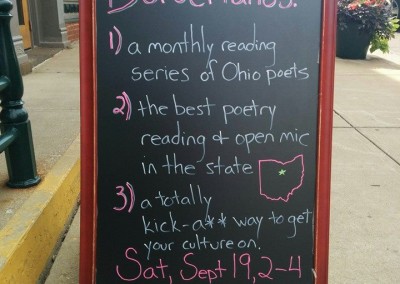 Borderlands:
1) a monthly reading
series of Ohio poets
2) the best poetry
reading & open mic
in the state
3) a totally
kick-a** way to get
your culture on.
Sat, Sept 19, 2-4